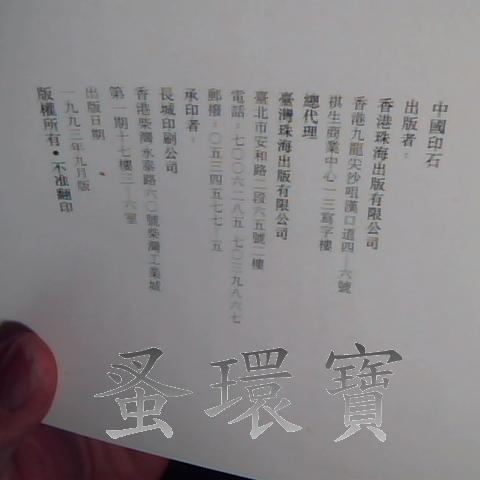 中國印石
出版者：
香港珠海出版有限公司
香港九龍尖沙咀漢口道四—六號
祺生商業中心一三寫字樓
總代理
臺灣珠海出版有限公司
臺北市安和路二段六五號二樓
電話：七〇〇六二八五 七〇三九八六七
郵撥：〇五三四五五七七—五
承印者：
長城印刷公司
香港柴灣永泰路六〇號柴灣工業城
第一期十七樓三—六室
出版日期
一九九三年九月版
版權所有・不准翻印
蚤環寶